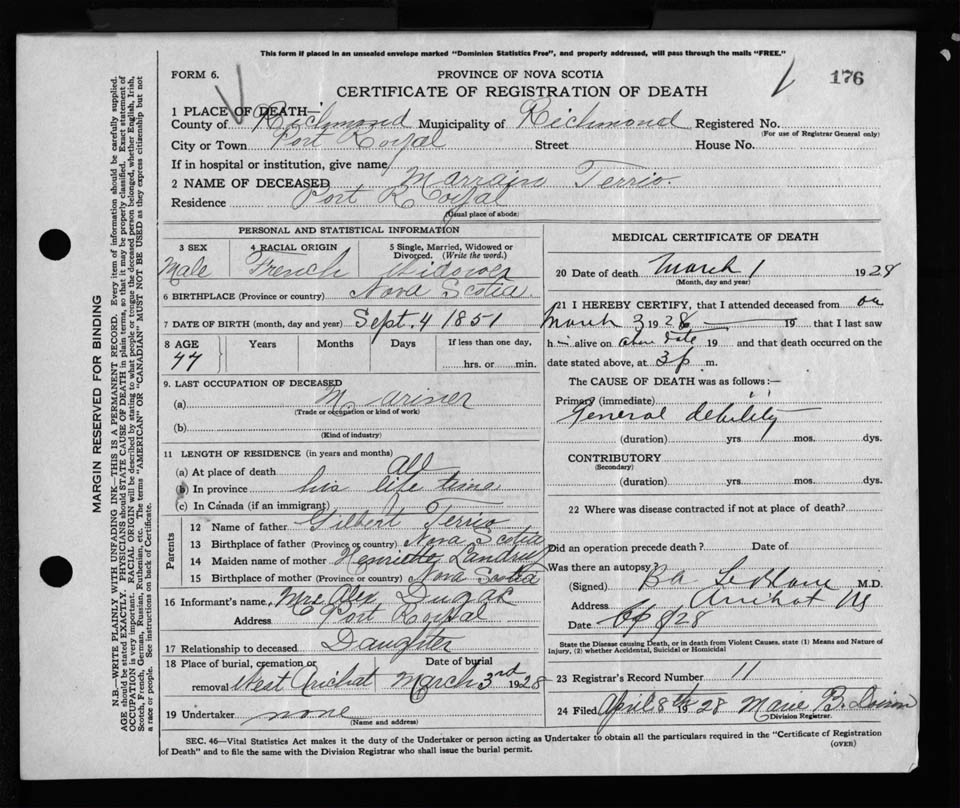 This form if placed in an unsealed envelope marked "Dominion Statistics Free", and properly addressed, will pass through the mails "FREE."
FORM 6.
PROVINCE OF NOVA SCOTIA
176
CERTIFICATE OF REGISTRATION OF DEATH
1 PLACE OF DEATH—
County of Richmond Municipality of Richmond Registered No.
(For use of Registrar General only)
City or Town Port Royal Street House No.
If in hospital or institution, give name
2 NAME OF DECEASED Marrain Terrio.
Residence Port Royal
(Usual place of abode)
PERSONAL AND STATISTICAL INFORMATION
3 SEX Male
4 RACIAL ORIGIN French
5 Single, Married, Widowed or Divorced. (Write the word.) Widower
6 BIRTHPLACE (Province or country) Nova Scotia.
7 DATE OF BIRTH (month, day and year) Sept. 4 1851
8 AGE 77 Years Months Days If less than one day, hrs. or min.
9. LAST OCCUPATION OF DECEASED
(a) Mariner
(Trade or occupation or kind of work)
(b)
(Kind of industry)
11 LENGTH OF RESIDENCE (in years and months)
(a) At place of death All
(b) In province his life time
(c) In Canada (if an immigrant)
Parents
12 Name of father Gilbert Terrio
13 Birthplace of father (Province or country) Nova Scotia
14 Maiden name of mother Henriette Landry
15 Birthplace of mother (Province or country) Nova Scotia
16 Informant's name, Mrs Alex Dugas
Address Port Royal
17 Relationship to deceased Daughter
18 Place of burial, cremation or removal West Arichat Date of burial March 3rd 1928
19 Undertaker none
(Name and address)
MEDICAL CERTIFICATE OF DEATH
20 Date of death March 1 1928
(Month, day and year)
21 I HEREBY CERTIFY, that I attended deceased from on
March 3 1928 19 that I last saw
h alive on above date 19 and that death occurred on the
date stated above, at 3 p m.
The CAUSE OF DEATH was as follows:—
Primary (immediate)
General debility
(duration) yrs. mos. dys.
CONTRIBUTORY
(Secondary)
(duration) yrs. mos. dys.
22 Where was disease contracted if not at place of death?
Did an operation precede death? Date of
Was there an autopsy?
(Signed) B.A. LeBlanc M.D.
Address Arichat NS
Date Ap 8 28
State the Disease causing Death, or in death from Violent Causes, state (1) Means and Nature of
Injury, (2) whether Accidental, Suicidal or Homicidal
23 Registrar's Record Number 11
24 Filed April 8th 1928 Marie B. Doiron
Division Registrar.
SEC. 46—Vital Statistics Act makes it the duty of the Undertaker or person acting as Undertaker to obtain all the particulars required in the "Certificate of Registration
of Death" and to file the same with the Division Registrar who shall issue the burial permit.
(OVER)
MARGIN RESERVED FOR BINDING
N.B.—WRITE PLAINLY WITH UNFADING INK—THIS IS A PERMANENT RECORD. Every item of information should be carefully supplied.
AGE should be stated EXACTLY. PHYSICIANS should STATE CAUSE OF DEATH in plain terms, so that it may be properly classified. Exact statement of
OCCUPATION is very important. RACIAL ORIGIN will be described by stating to what people or tongue the deceased person belonged, whether English, Irish,
Scotch, French, German, Russian, Ruthenian, etc. The terms "AMERICAN" OR "CANADIAN" MUST NOT BE USED as they express citizenship but not
a race or people. See instructions on back of Certificate.